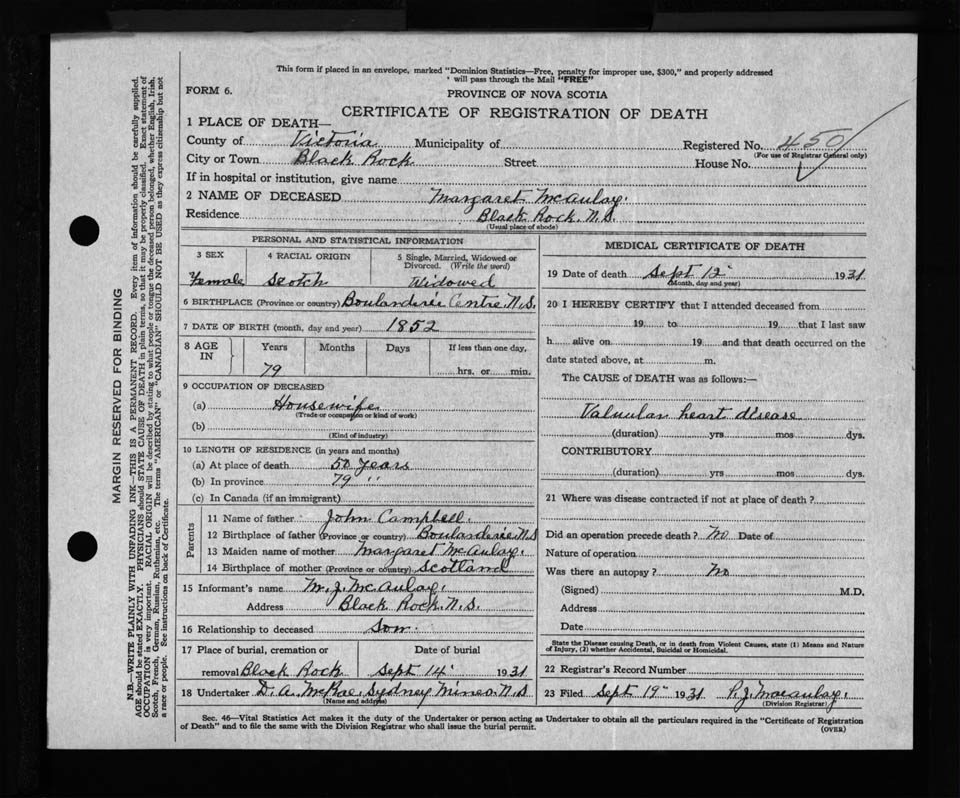 This form if placed in an envelope, marked "Dominion Statistics—Free, penalty for improper use, $300," and properly addressed
will pass through the Mail "FREE"
FORM 6.
PROVINCE OF NOVA SCOTIA
CERTIFICATE OF REGISTRATION OF DEATH
1 PLACE OF DEATH—
County of Victoria Municipality of Registered No. 450
(For use of Registrar General only)
City or Town Black Rock Street House No.
If in hospital or institution, give name
2 NAME OF DECEASED Margaret McAulay.
Residence Black Rock. N.S.
(Usual place of abode)
PERSONAL AND STATISTICAL INFORMATION
3 SEX 4 RACIAL ORIGIN 5 Single, Married, Widowed or Divorced. (Write the word)
Female Scotch Widowed
6 BIRTHPLACE (Province or country) Boulanderie Centre N.S.
7 DATE OF BIRTH (month, day and year) 1852
8 AGE IN Years Months Days If less than one day,
79 hrs. or min.
9 OCCUPATION OF DECEASED
(a) Housewife
(Trade or occupation or kind of work)
(b)
(Kind of industry)
10 LENGTH OF RESIDENCE (in years and months)
(a) At place of death 50 years
(b) In province 79 "
(c) In Canada (if an immigrant)
Parents
11 Name of father John Campbell.
12 Birthplace of father (Province or country) Boulanderie N.S
13 Maiden name of mother Margaret McAulay.
14 Birthplace of mother (Province or country) Scotland
15 Informant's name M. J. McAulay.
Address Black Rock. N.S.
16 Relationship to deceased Son.
17 Place of burial, cremation or Date of burial
removal Black Rock Sept 14 1931
18 Undertaker D. A. McRae, Sydney Mines. N.S
(Name and address)
MEDICAL CERTIFICATE OF DEATH
19 Date of death Sept 12 1931
(Month, day and year)
20 I HEREBY CERTIFY that I attended deceased from
19 to 19 that I last saw
h alive on 19 and that death occurred on the
date stated above, at m.
The CAUSE of DEATH was as follows:—
Valvular heart disease
(duration) yrs mos dys.
CONTRIBUTORY
(duration) yrs mos dys.
21 Where was disease contracted if not at place of death ?
Did an operation precede death ? No Date of
Nature of operation
Was there an autopsy ? No
(Signed) M.D.
Address
Date
State the Disease causing Death, or in death from Violent Causes, state (1) Means and Nature
of Injury, (2) whether Accidental, Suicidal or Homicidal.
22 Registrar's Record Number
23 Filed Sept 19 1931 P. J. Macaulay.
(Division Registrar)
Sec. 46—Vital Statistics Act makes it the duty of the Undertaker or person acting as Undertaker to obtain all the particulars required in the "Certificate of Registration
of Death" and to file the same with the Division Registrar who shall issue the burial permit.
(OVER)
MARGIN RESERVED FOR BINDING
N.B.—WRITE PLAINLY WITH UNFADING INK—THIS IS A PERMANENT RECORD. Every item of information should be carefully supplied.
AGE should be stated EXACTLY. PHYSICIANS should STATE CAUSE OF DEATH in plain terms, so that it may be properly classified. Exact statement of
OCCUPATION is very important. RACIAL ORIGIN will be described by stating to what people or tongue the deceased person belonged, whether English, Irish,
Scotch, French, German, Russian, Ruthenian, etc. The terms "AMERICAN" or "CANADIAN" SHOULD NOT BE USED as they express citizenship but not
a race or people. See instructions on back of Certificate.